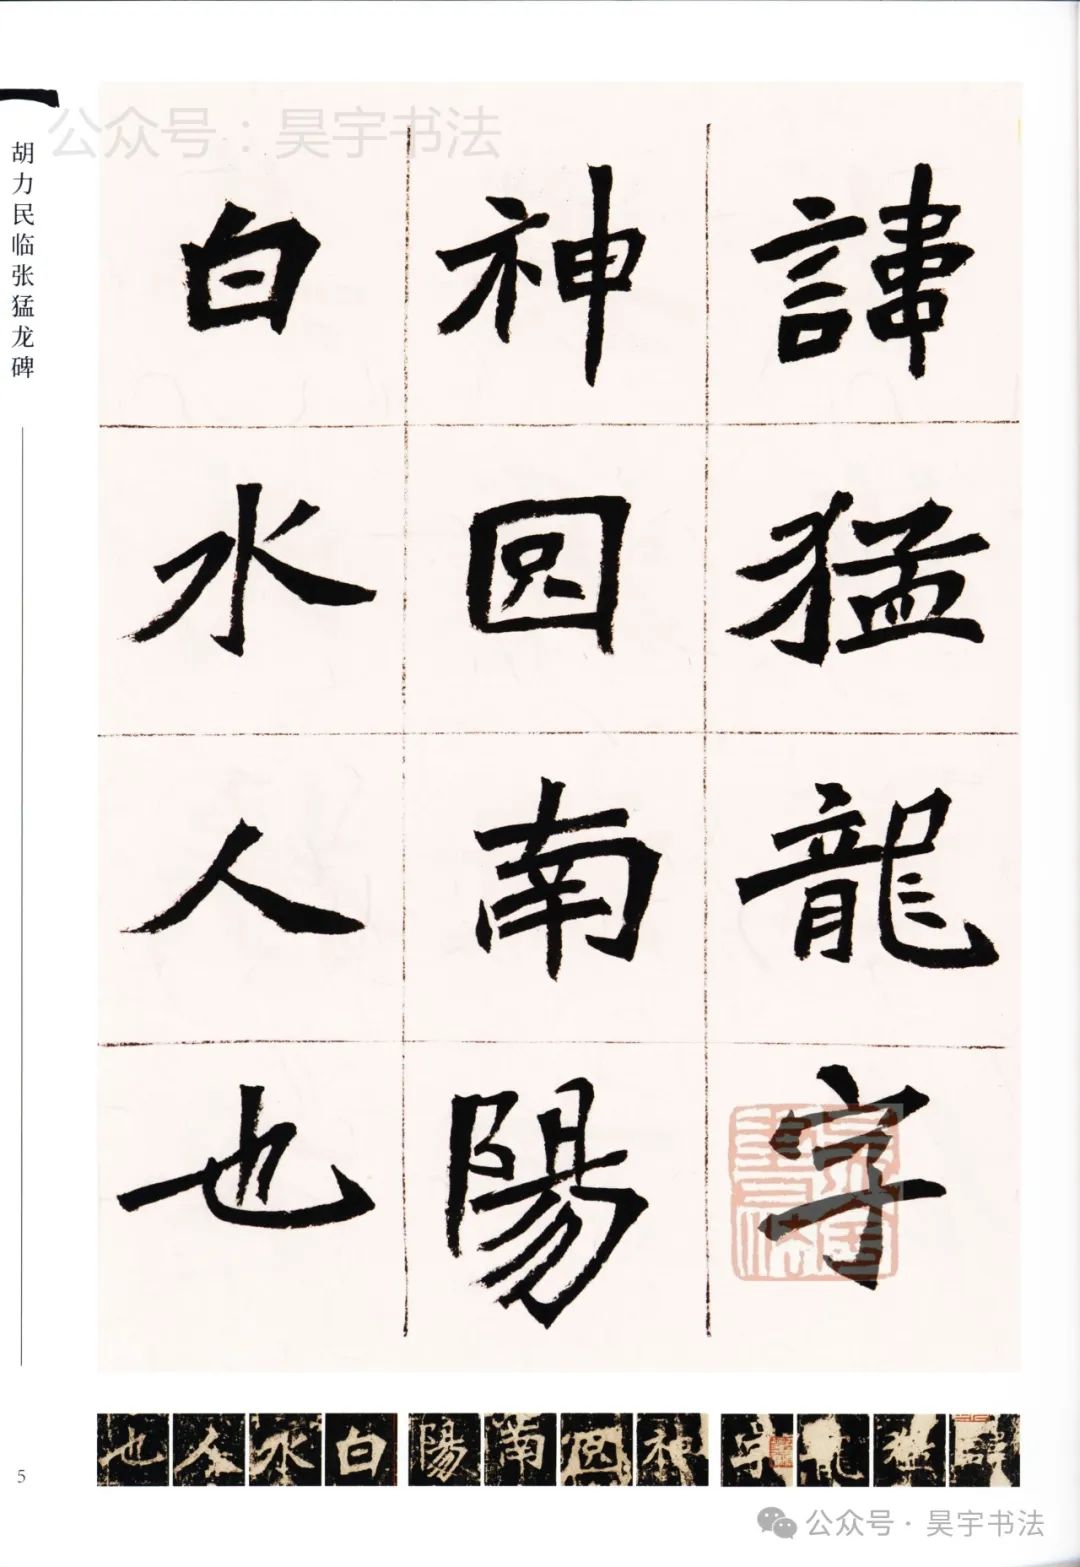 公众号：昊宇书法
胡力民临张猛龙碑
諱猛龍字
神囧南陽
白水人也
也人水白陽南囧神字龍猛諱
5
公众号·昊宇书法